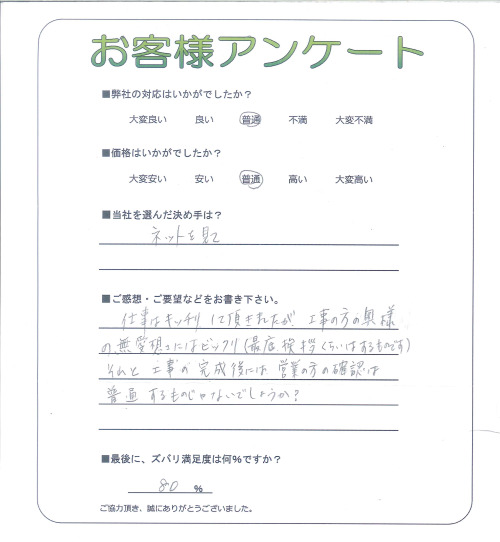 お客様アンケート
■弊社の対応はいかがでしたか?
大変良い 良い 普通 不満 大変不満
■価格はいかがでしたか?
大変安い 安い 普通 高い 大変高い
■当社を選んだ決め手は?
ネットを見て
■ご感想・ご要望などをお書き下さい。
仕事はキッチリして頂きましたが、工事の方の奥様
の無愛想さにはビックリ(最低、挨拶くらいはするものです)
それと工事の完成後には営業の方の確認は
普通するものじゃないでしょうか?
■最後に、ズバリ満足度は何%ですか?
80 %
ご協力頂き、誠にありがとうございました。